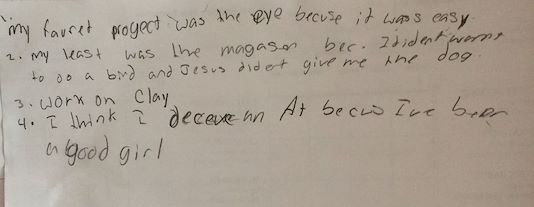 my favret progect was the eye becuse it was easy.
2. my least was the magasen bec. I dident wanne
to do a bird and Jesus didet give me the dog.
3. work on Clay
4. I think I deceve an At becus Ive been
a good girl